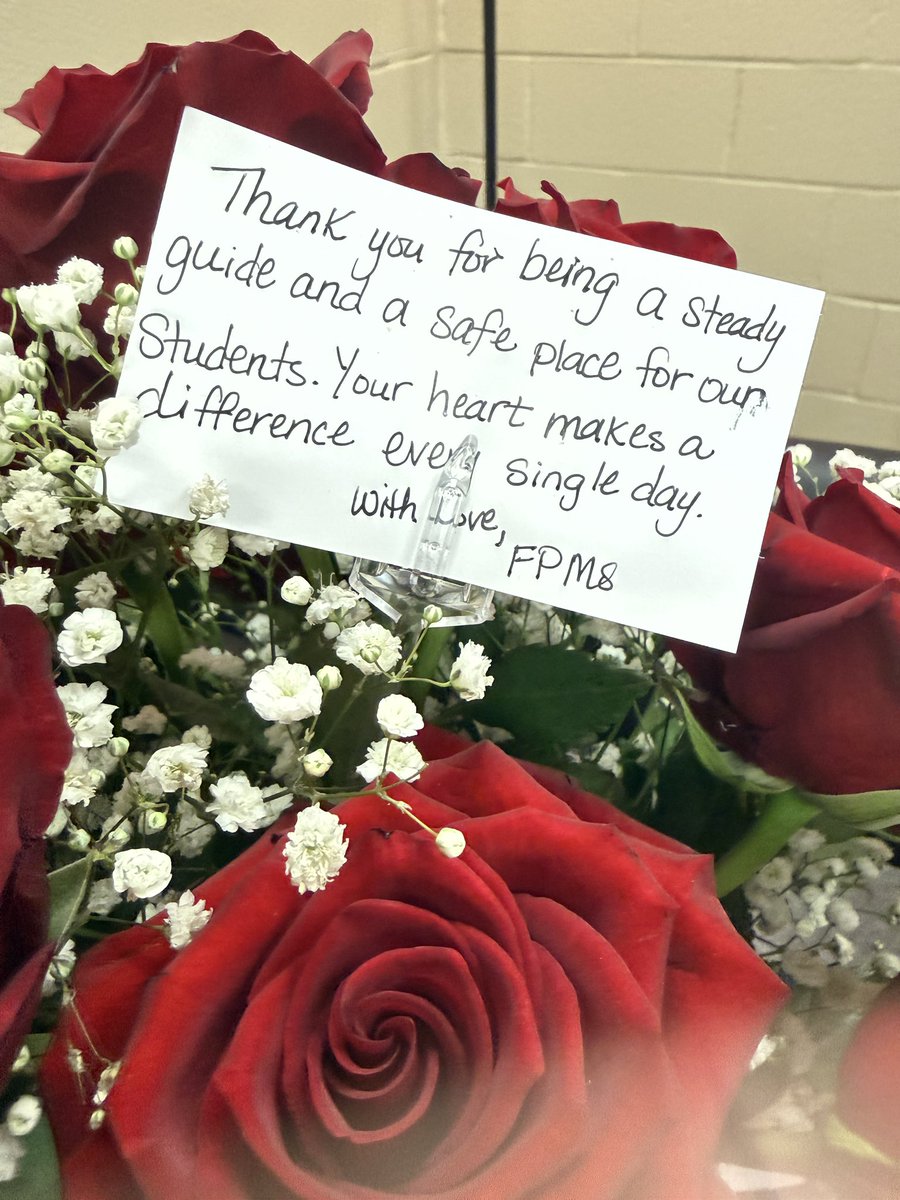 Thank you for being a steady
guide and a safe place for our
Students. Your heart makes a
difference every single day.
With Love,
FPMS